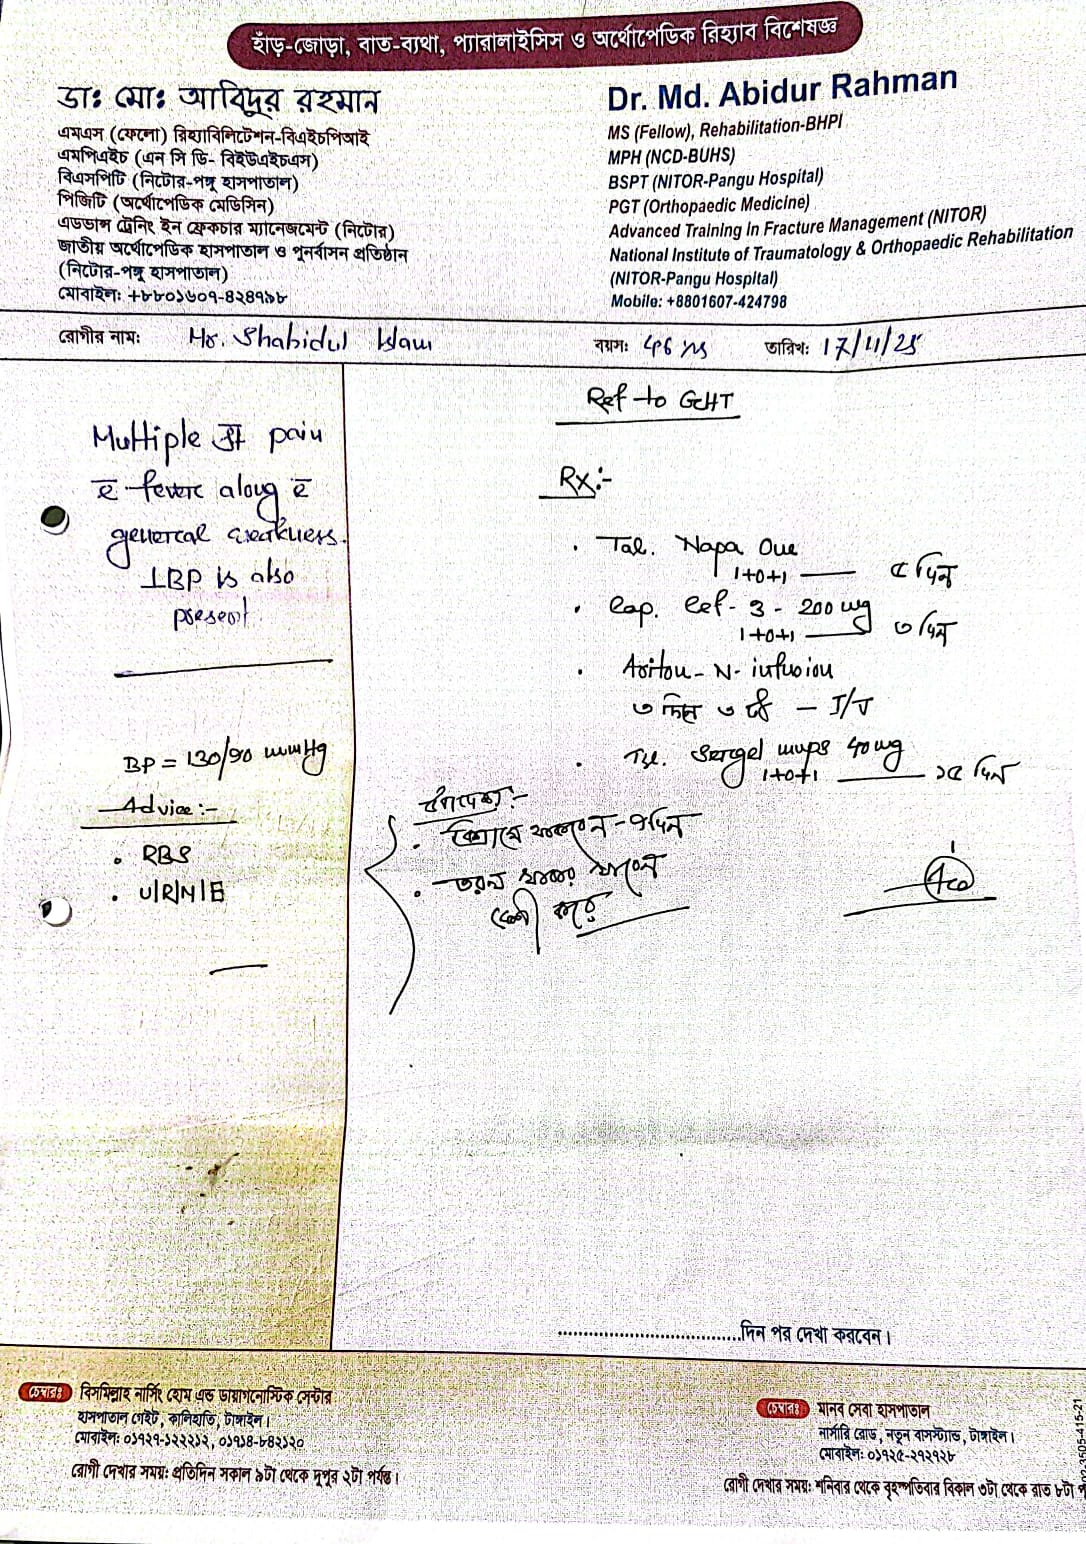 হাঁড়-জোড়া, বাত-ব্যথা, প্যারালাইসিস ও অর্থোপেডিক রিহ্যাব বিশেষজ্ঞ
ডাঃ মোঃ আবিদুর রহমান
এমএস (ফেলো) রিহ্যাবিলিটেশন-বিএইচপিআই
এমপিএইচ (এন সি ডি- বিইউএইচএস)
বিএসপিটি (নিটোর-পঙ্গু হাসপাতাল)
পিজিটি (অর্থোপেডিক মেডিসিন)
এডভান্স ট্রেনিং ইন ফ্রেকচার ম্যানেজমেন্ট (নিটোর)
জাতীয় অর্থোপেডিক হাসপাতাল ও পুনর্বাসন প্রতিষ্ঠান
(নিটোর-পঙ্গু হাসপাতাল)
মোবাইল: +৮৮০১৬০৭-৪২৪৭৯৮
Dr. Md. Abidur Rahman
MS (Fellow), Rehabilitation-BHPI
MPH (NCD-BUHS)
BSPT (NITOR-Pangu Hospital)
PGT (Orthopaedic Medicine)
Advanced Training In Fracture Management (NITOR)
National Institute of Traumatology & Orthopaedic Rehabilitation
(NITOR-Pangu Hospital)
Mobile: +8801607-424798
রোগীর নাম: Mr. Shahidul Islam বয়স: 46 তারিখ: 17/11/25
Multiple pain
c̅ fever along c̅
general weakness.
LBP is also
present
BP = 130/90 mmHg
Advice:-
• RBS
• U/R/M/E
Ref to GHT
Rx:-
• Tab. Napa One
1+0+1 — ৫ দিন
• Cap. Cef-3 - 200 mg
1+0+1 — ৩ দিন
• Ariton-N-infusion
৩ দিনে ৩ টি – I/V
• Tab. Sergel mups 40 mg
1+0+1 — ১৫ দিন
উপদেশ:-
• বিশ্রামে থাকবেন-৭দিন
• তরল খাবার খাবেন
বেশী করে
দিন পর দেখা করবেন।
চেম্বারঃ বিসমিল্লাহ নার্সিং হোম এন্ড ডায়াগনোস্টিক সেন্টার
হাসপাতাল গেইট, কালিহাতি, টাঙ্গাইল।
মোবাইল: ০১৭২৭-১২২২১২, ০১৭১৪-৮৪২১২০
রোগী দেখার সময়: প্রতিদিন সকাল ৯টা থেকে দুপুর ২টা পর্যন্ত।
চেম্বারঃ মানব সেবা হাসপাতাল
নার্সারি রোড, নতুন বাসস্ট্যান্ড, টাঙ্গাইল।
মোবাইল: ০১৭২৫-২৭২৭২৮
রোগী দেখার সময়: শনিবার থেকে বৃহস্পতিবার বিকাল ৩টা থেকে রাত ৮টা